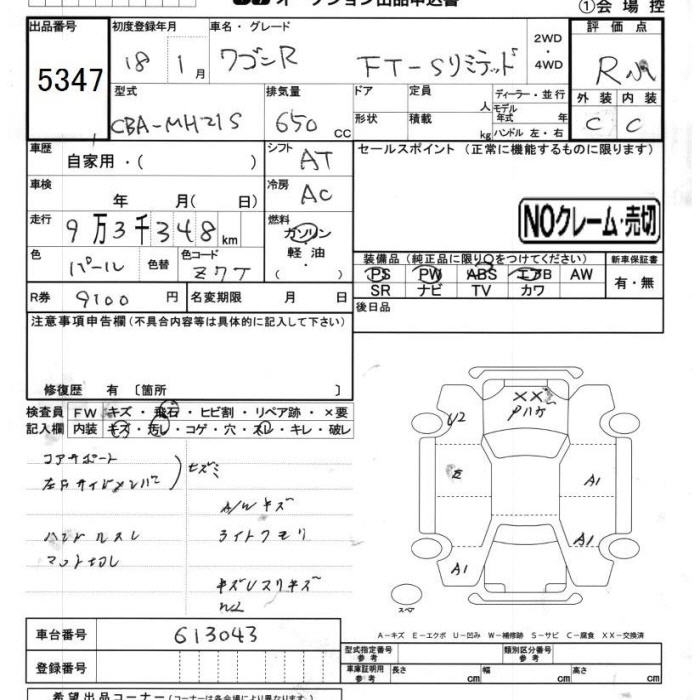 ①会場控
出品番号 初度登録年月 車名・グレード 評価点
5347 18 1月 ワゴンR FT-Sリミテッド 2WD・4WD R
型式 排気量 ドア 定員 人 ディーラー・並行 外装 内装
CBA-MH21S 650 CC 形状 積載 kg モデル年式 年 ハンドル 左・右 C C
車歴 自家用・( ) シフト AT セールスポイント (正常に機能するものに限ります)
車検 年 月( 日) 冷房 AC
走行 9万3千348km 燃料 ガソリン・軽油・( ) NOクレーム・売切
色 パール 色替 色コード Z7T
装備品 (純正品に限り○をつけてください) 新車保証書
PS PW ABS エアB AW 有・無
SR ナビ TV カワ
R券 9100円 名変期限 月 日 後日品
注意事項申告欄(不具合内容等は具体的に記入して下さい)
修復歴 有 〔箇所 〕
検査員記入欄 FW キズ・飛石・ヒビ割・リペア跡・×要
内装 キズ・汚レ・コゲ・穴・スレ・キレ・破レ
コアサポート
左右サイドメンバー
A/Wキズ
ハンドルスレ ライトクモリ
マット汚レ
XX
U2
E
A1
A1
A1
スペア
A-キズ E-エクボ U-凹み W-補修跡 S-サビ C-腐食 XX-交換済
車台番号 613043
型式指定番号 参考 類別区分番号 参考
登録番号 車庫証明用 参考 長さ cm 幅 cm 高さ cm
希望出品コーナー(コーナーは各会場により異なります)